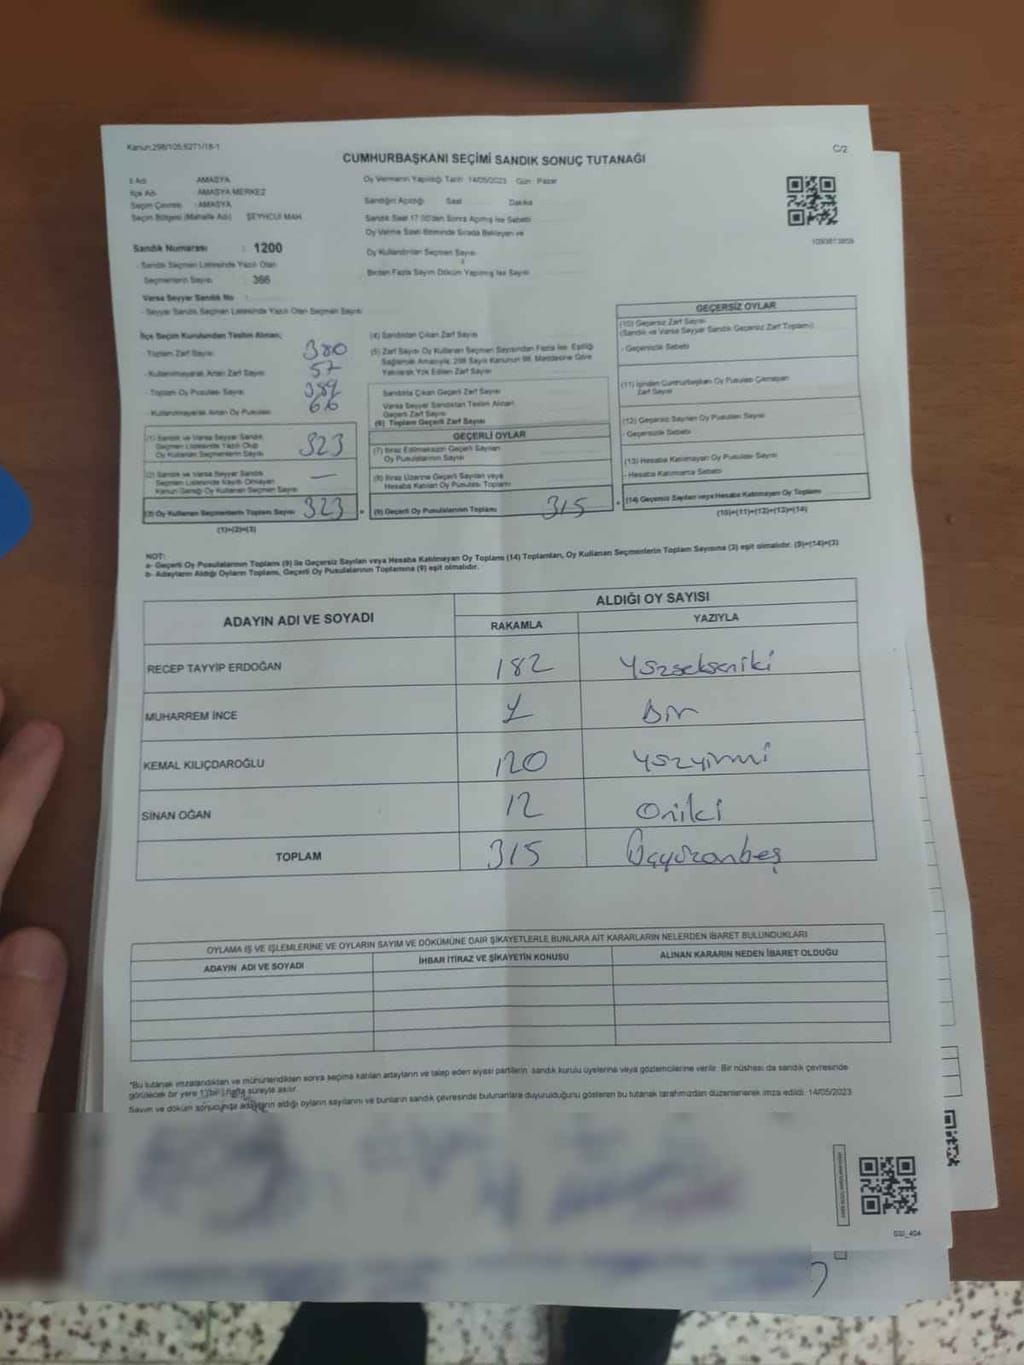 Kanun:298/105,6271/18-1
C/2
CUMHURBAŞKANI SEÇİMİ SANDIK SONUÇ TUTANAĞI
İl Adı : AMASYA
İlçe Adı : AMASYA MERKEZ
Seçim Çevresi : AMASYA
Seçim Bölgesi (Mahalle Adı) : ŞEYHCUI MAH
Oy Vermenin Yapıldığı Tarih : 14/05/2023 - Gün : Pazar
Sandığın Açıldığı Saat Dakika
Sandık Saat 17:00'den Sonra Açılmış İse Sebebi
Oy Verme Saati Bitiminde Sırada Bekleyen ve
Oy Kullandırılan Seçmen Sayısı
Birden Fazla Sayım Döküm Yapılmış İse Sayısı
Sandık Numarası : 1200
- Sandık Seçmen Listesinde Yazılı Olan
Seçmenlerin Sayısı : 366
Varsa Seyyar Sandık No :
- Seyyar Sandık Seçmen Listesinde Yazılı Olan Seçmen Sayısı
İlçe Seçim Kurulundan Teslim Alınan;
- Toplam Zarf Sayısı 380
- Kullanılmayarak Artan Zarf Sayısı 57
- Toplam Oy Pusulası Sayısı 389
- Kullanılmayarak Artan Oy Pusulası 66
(1) Sandık ve Varsa Seyyar Sandık
Seçmen Listesinde Yazılı Olup
Oy Kullanan Seçmenlerin Sayısı 323
(2) Sandık ve Varsa Seyyar Sandık
Seçmen Listesinde Kayıtlı Olmayan
Kanun Gereği Oy Kullanan Seçmen Sayısı —
(3) Oy Kullanan Seçmenlerin Toplam Sayısı 323
(1)+(2)=(3)
(4) Sandıktan Çıkan Zarf Sayısı
(5) Zarf Sayısı Oy Kullanan Seçmen Sayısından Fazla İse, Eşitliği
Sağlamak Amacıyla, 298 Sayılı Kanunun 98. Maddesine Göre
Yakılarak Yok Edilen Zarf Sayısı
Sandıkta Çıkan Geçerli Zarf Sayısı
Varsa Seyyar Sandıktan Teslim Alınan
Geçerli Zarf Sayısı
(6) Toplam Geçerli Zarf Sayısı
GEÇERLİ OYLAR
(7) İtiraz Edilmeksizin Geçerli Sayılan
Oy Pusulalarının Sayısı
(8) İtiraz Üzerine Geçerli Sayılan veya
Hesaba Katılan Oy Pusulası Toplamı
(9) Geçerli Oy Pusulalarının Toplamı 315
GEÇERSİZ OYLAR
(10) Geçersiz Zarf Sayısı
(Sandık ve Varsa Seyyar Sandık Geçersiz Zarf Toplamı)
- Geçersizlik Sebebi
(11) İçinden Cumhurbaşkanı Oy Pusulası Çıkmayan
Zarf Sayısı
(12) Geçersiz Sayılan Oy Pusulası Sayısı
- Geçersizlik Sebebi
(13) Hesaba Katılmayan Oy Pusulası Sayısı
- Hesaba Katılmama Sebebi
(14) Geçersiz Sayılan veya Hesaba Katılmayan Oy Toplamı
(10)+(11)+(12)+(13)=(14)
NOT:
a- Geçerli Oy Pusulalarının Toplamı (9) ile Geçersiz Sayılan veya Hesaba Katılmayan Oy Toplamı (14) Toplamları, Oy Kullanan Seçmenlerin Toplam Sayısına (3) eşit olmalıdır. (9)+(14)=(3)
b- Adayların Aldığı Oyların Toplamı, Geçerli Oy Pusulalarının Toplamına (9) eşit olmalıdır.
ADAYIN ADI VE SOYADI
ALDIĞI OY SAYISI
RAKAMLA YAZIYLA
RECEP TAYYİP ERDOĞAN 182 Yüzsekseniki
MUHARREM İNCE 1 Bir
KEMAL KILIÇDAROĞLU 120 Yüzyirmi
SİNAN OĞAN 12 Oniki
TOPLAM 315 Üçyüzonbeş
OYLAMA İŞ VE İŞLEMLERİNE VE OYLARIN SAYIM VE DÖKÜMÜNE DAİR ŞİKAYETLERLE BUNLARA AİT KARARLARIN NELERDEN İBARET BULUNDUKLARI
ADAYIN ADI VE SOYADI İHBAR İTİRAZ VE ŞİKAYETİN KONUSU ALINAN KARARIN NEDEN İBARET OLDUĞU
*Bu tutanak imzalandıktan ve mühürlendikten sonra seçime katılan adayların ve talep eden siyasi partilerin sandık kurulu üyelerine veya gözlemcilerine verilir. Bir nüshası da sandık çevresinde
görülecek bir yere 1 (bir) hafta süreyle asılır.
Sayım ve döküm sonucunda adayların aldığı oyların sayılarını ve bunların sandık çevresinde bulunanlara duyurulduğunu gösteren bu tutanak tarafımızdan düzenlenerek imza edildi. 14/05/2023